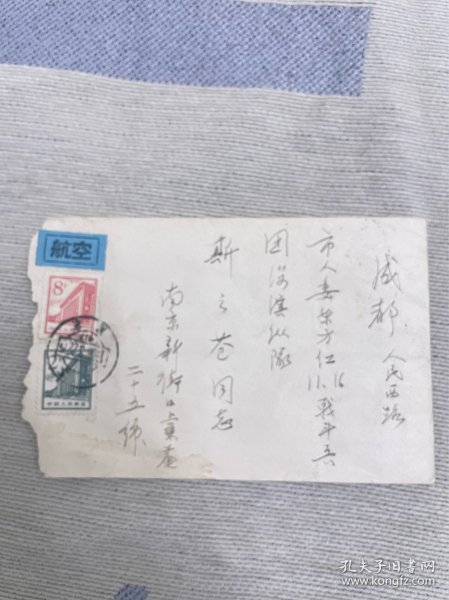 成都 人民西路
市人委东方红
11.16 战斗兵
团 纵队
斯 苍同志
南京新街口上乘庵
二十五号
航空
8分
中国人民邮政
孔夫子旧书网
www.kongfz.com